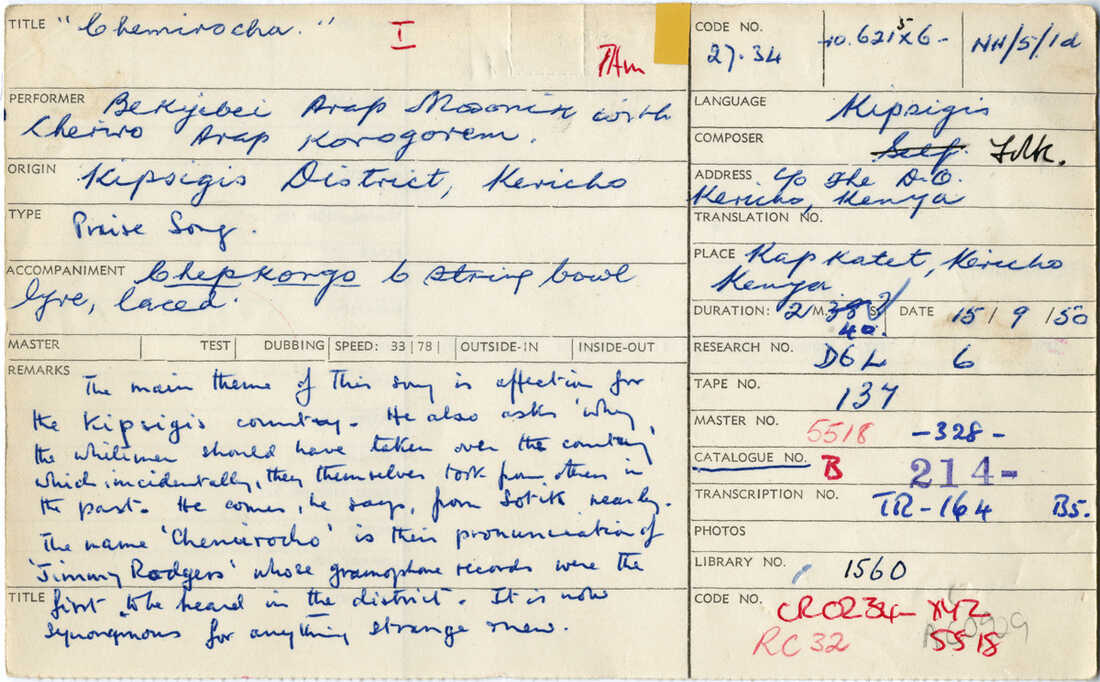 TITLE "Chemirocha." I
CODE NO. 27.34
NH/5/1d
PERFORMER Bekyibei Arap Mosonik with
Cheriro Arap Korogorem.
LANGUAGE Kipsigis
COMPOSER Self. Folk.
ORIGIN Kipsigis District, Kericho
ADDRESS C/o The D.O.
Kericho, Kenya
TYPE Praise Song.
TRANSLATION NO.
ACCOMPANIMENT Chepkongo 6 string bowl
lyre, laced.
PLACE Kapkatet, Kericho
Kenya.
DURATION: 2 M. 38 S. DATE 15/9/50
40
MASTER TEST DUBBING SPEED: 33 78 OUTSIDE-IN INSIDE-OUT
RESEARCH NO. D6L 6
REMARKS The main theme of this song is affection for
the Kipsigis country. He also asks 'why
the whitemen should have taken over the country'
which, incidentally, they themselves took from others in
the past. He comes, he says, from Sotik nearby.
The name 'Chemirocho' is their pronunciation of
'Jimmy Rodgers' whose gramophone records were the
TITLE first to be heard in the district. It is now
synonymous for anything strange & new.
TAPE NO. 137
MASTER NO. 5518 -328-
CATALOGUE NO. B 214-
TRANSCRIPTION NO. TR-164 B5.
PHOTOS
LIBRARY NO. 1560
CODE NO. CR0234- XYZ
RC 32 5518